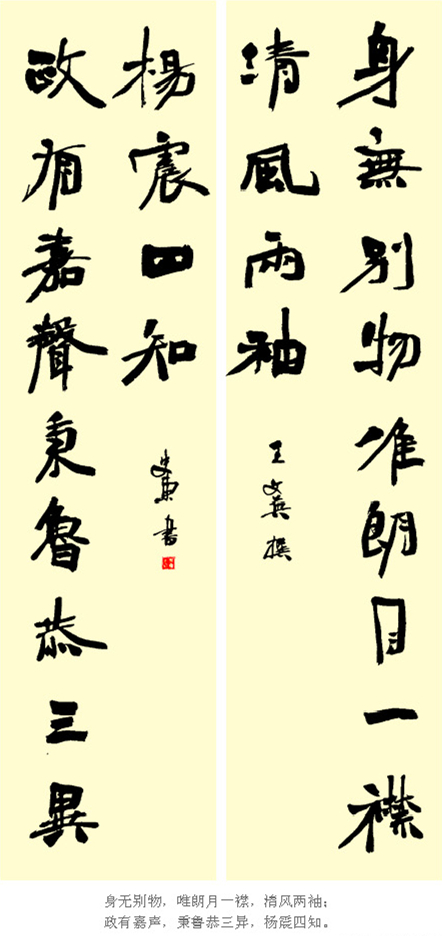 身無別物唯朗月一襟
清風兩袖
王文英撰
政有嘉聲秉魯恭三異
楊震四知
書
身无别物，唯朗月一襟，清风两袖；
政有嘉声，秉鲁恭三异，杨震四知。